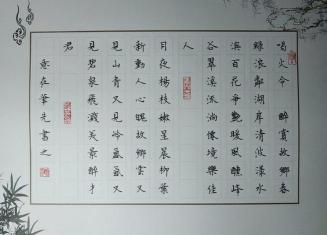 唱火令　醉賞故鄉春
綠浪鄰湖岸清波漾水
濱百花爭艷暖風醺峰
谷翠溪流淌像境樂佳
人
月夜楊枝嫩星晨柳葉
新動人心曉故鄉雲又
見山青又見嶺氤氳又
見碧泉飛濺美景醉才
君
意在筆先書之